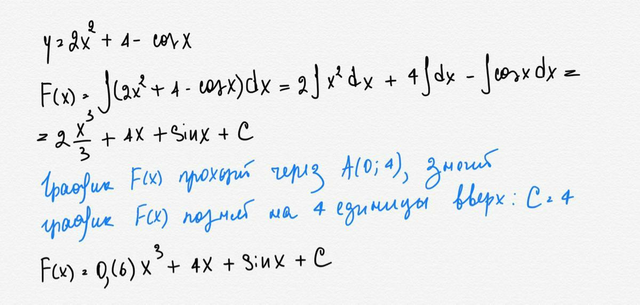 y = 2x² + 4 - cos x
F(x) = ∫(2x² + 4 - cos x)dx = 2∫x² dx + 4∫dx - ∫cos x dx =
= 2 x³/3 + 4x + sin x + C
График F(x) проходит через A(0; 4), значит
график F(x) поднят на 4 единицы вверх: C = 4
F(x) = 0,(6)x³ + 4x + sin x + C